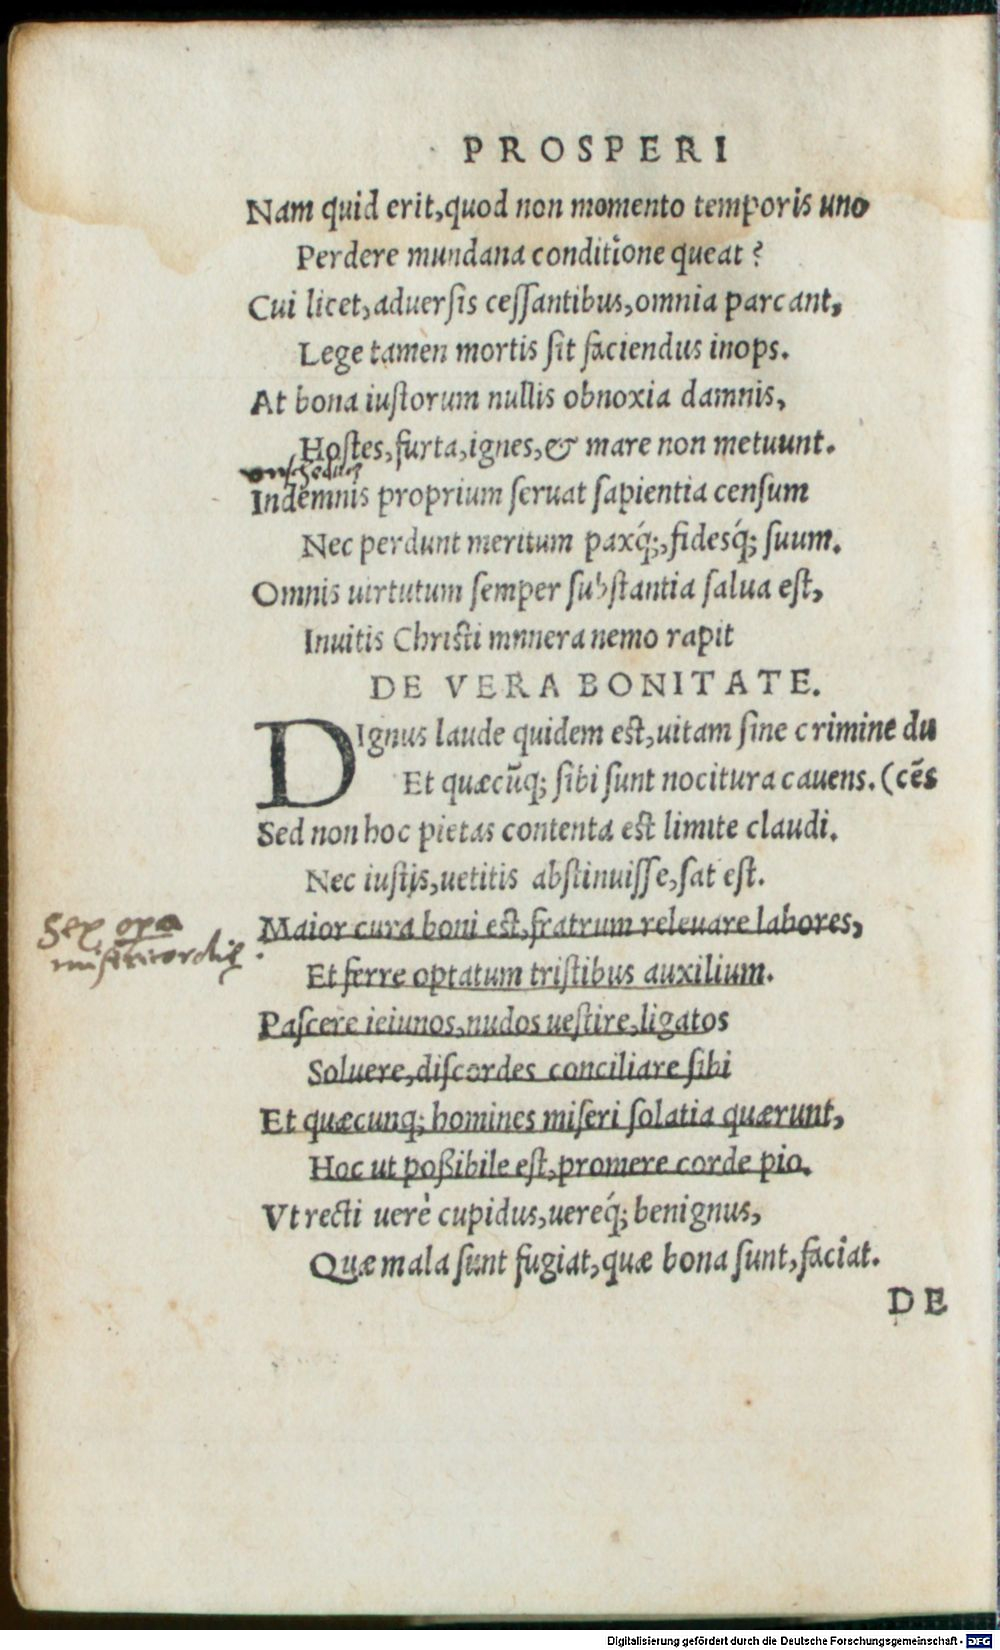 PROSPERI
Nam quid erit, quod non momento temporis uno
Perdere mundana conditione queat?
Cui licet, aduersis cessantibus, omnia parcant,
Lege tamen mortis sit faciendus inops.
At bona iustorum nullis obnoxia damnis,
Hostes, furta, ignes, & mare non metuunt.
Indemnis proprium seruat sapientia censum
Nec perdunt meritum paxq́;, fidesq́; suum.
Omnis uirtutum semper substantia salua est,
Inuitis Christi mnnera nemo rapit
DE VERA BONITATE.
DIgnus laude quidem est, uitam sine crimine du
Et quæcũq; sibi sunt nocitura cauens. (cẽs
Sed non hoc pietas contenta est limite claudi.
Nec iustis, uetitis abstinuisse, sat est.
Sex opa
misericordię
Maior cura boni est, fratrum releuare labores,
Et ferre optatum tristibus auxilium.
Pascere ieiunos, nudos uestire, ligatos
Soluere, discordes conciliare sibi
Et quæcunq; homines miseri solatia quærunt,
Hoc ut poßibile est, promere corde pio.
Vt recti uerè cupidus, uereq́; benignus,
Quæ mala sunt fugiat, quæ bona sunt, faciat.
DE
Digitalisierung gefördert durch die Deutsche Forschungsgemeinschaft - DFG